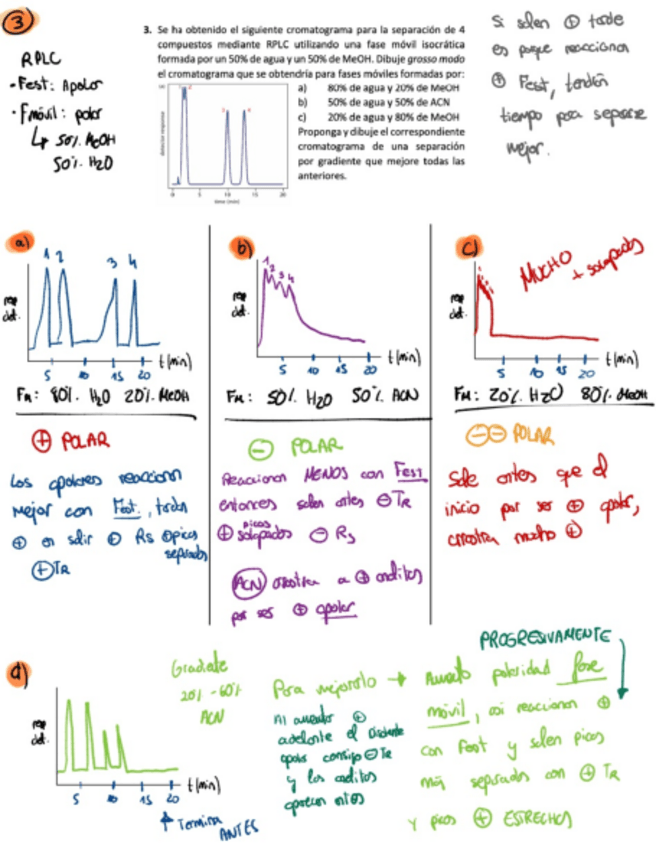 3
RPLC
• Fest: Apolar
• Fmóvil: polar
↳ 50% MeOH
50% H2O
3. Se ha obtenido el siguiente cromatograma para la separación de 4
compuestos mediante RPLC utilizando una fase móvil isocrática
formada por un 50% de agua y un 50% de MeOH. Dibuje grosso modo
el cromatograma que se obtendría para fases móviles formadas por:
a) 80% de agua y 20% de MeOH
b) 50% de agua y 50% de ACN
c) 20% de agua y 80% de MeOH
Proponga y dibuje el correspondiente
cromatograma de una separación
por gradiente que mejore todas las
anteriores.
detector response
0 5 10 15 20
time (min)
Si salen ⊕ tarde
es porque reaccionan
⊕ Fest, tendrán
tiempo para separarse
mejor.
a)
1 2 3 4
resp
det.
5 10 15 20 t(min)
FM: 80% H2O 20% MeOH
⊕ POLAR
Los apolares reaccionan
mejor con Fest., tardan
⊕ en salir ⊕ Rs ⊕ picos
separados
⊕ TR
b)
1 2 3 4
resp
det.
5 10 15 20 t(min)
FM: 50% H2O 50% ACN
⊖ POLAR
Reaccionan MENOS con Fest
entonces salen antes ⊖ TR
⊕ picos solapados ⊖ Rs
ACN arrastra a ⊕ analitos
por ser ⊕ apolar
c)
MUCHO
+ solapados
resp
det.
5 10 15 20 t(min)
FM: 20% H2O 80% MeOH
⊖⊖ POLAR
Sale antes que el
inicio por ser ⊕ apolar,
arrastra mucho ⊕
d)
resp
det.
5 10 15 20 t(min)
↑ Termina
ANTES
Gradiente
20% - 60%
ACN
Para mejorarlo →
Al aumentar ⊕
adelante el
apolar consigo ⊖ TR
y los analitos
aparecen antes
PROGRESIVAMENTE
Aumento polaridad fase
móvil, así reaccionan ⊕
con Fest y salen picos
más separados con ⊕ TR
y picos ⊕ ESTRECHOS